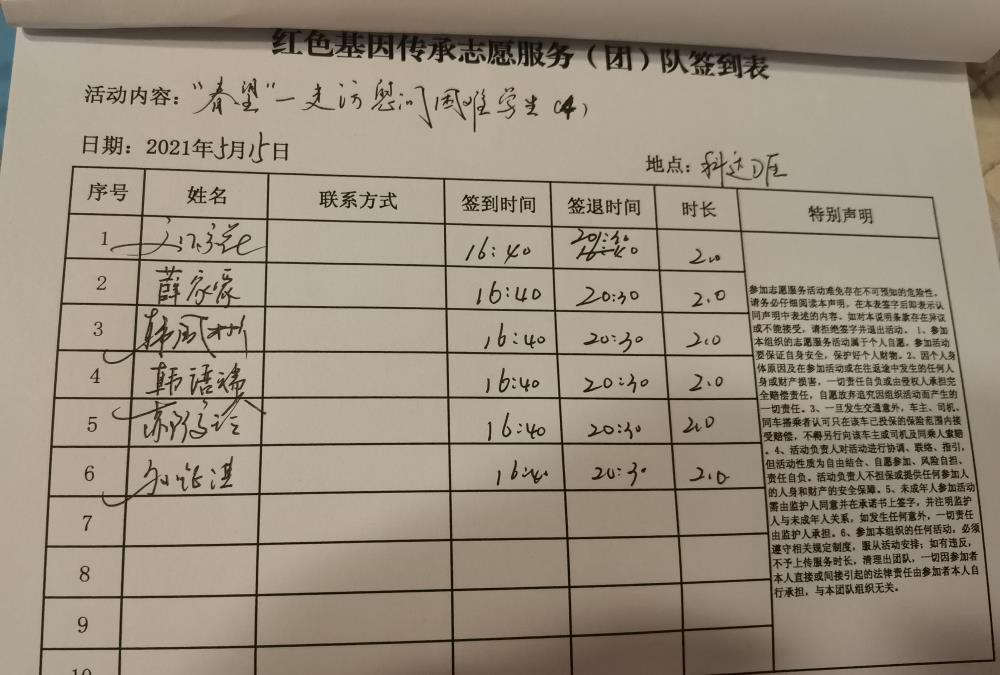 红色基因传承志愿服务（团）队签到表
活动内容："春望"一走访慰问困难学生（4）
日期：2021年5月15日
地点：科达
序号 姓名 联系方式 签到时间 签退时间 时长 特别声明
1 16:40 2.0
2 薛家豪 16:40 20:30 2.0
3 韩 16:40 20:30 2.0
4 韩语 16:40 20:30 2.0
5 16:40 20:30 2.0
6 16:40 20:30 2.0
7
8
9
10
参加志愿服务活动难免存在不可预知的危险性。
请务必仔细阅读本声明，在本表签字后即表示认
同声明中表述的内容。如对本说明条款存在异议
或不能接受，请拒绝签字并退出活动。 1、参加
本组织的志愿服务活动属于个人自愿。参加活动
要保证自身安全，保护好个人财物。2、因个人身
体原因及在参加活动或在往返途中发生的任何人
身或财产损害，一切责任自负或由侵权人承担完
全赔偿责任，自愿放弃追究因组织活动而产生的
一切责任。3、一旦发生交通意外，车主、司机、
同车搭乘者认可只在该车已投保的保险范围内接
受赔偿，不得另行向该车主或司机及同乘人索赔
。4、活动负责人对活动进行协调、联络、指引，
但活动性质为自由结合、自愿参加、风险自担、
责任自负。活动负责人不担保或提供任何参加人
的人身和财产的安全保障。5、未成年人参加活动
需由监护人同意并在承诺书上签字，并注明监护
人与未成年人关系，如发生任何意外，一切责任
由监护人承担。6、参加本组织的任何活动，必须
遵守相关规定制度，服从活动安排；如有违反，
不予上传服务时长，清理出团队，一切因参加者
本人直接或间接引起的法律责任由参加者本人自
行承担，与本团队组织无关。